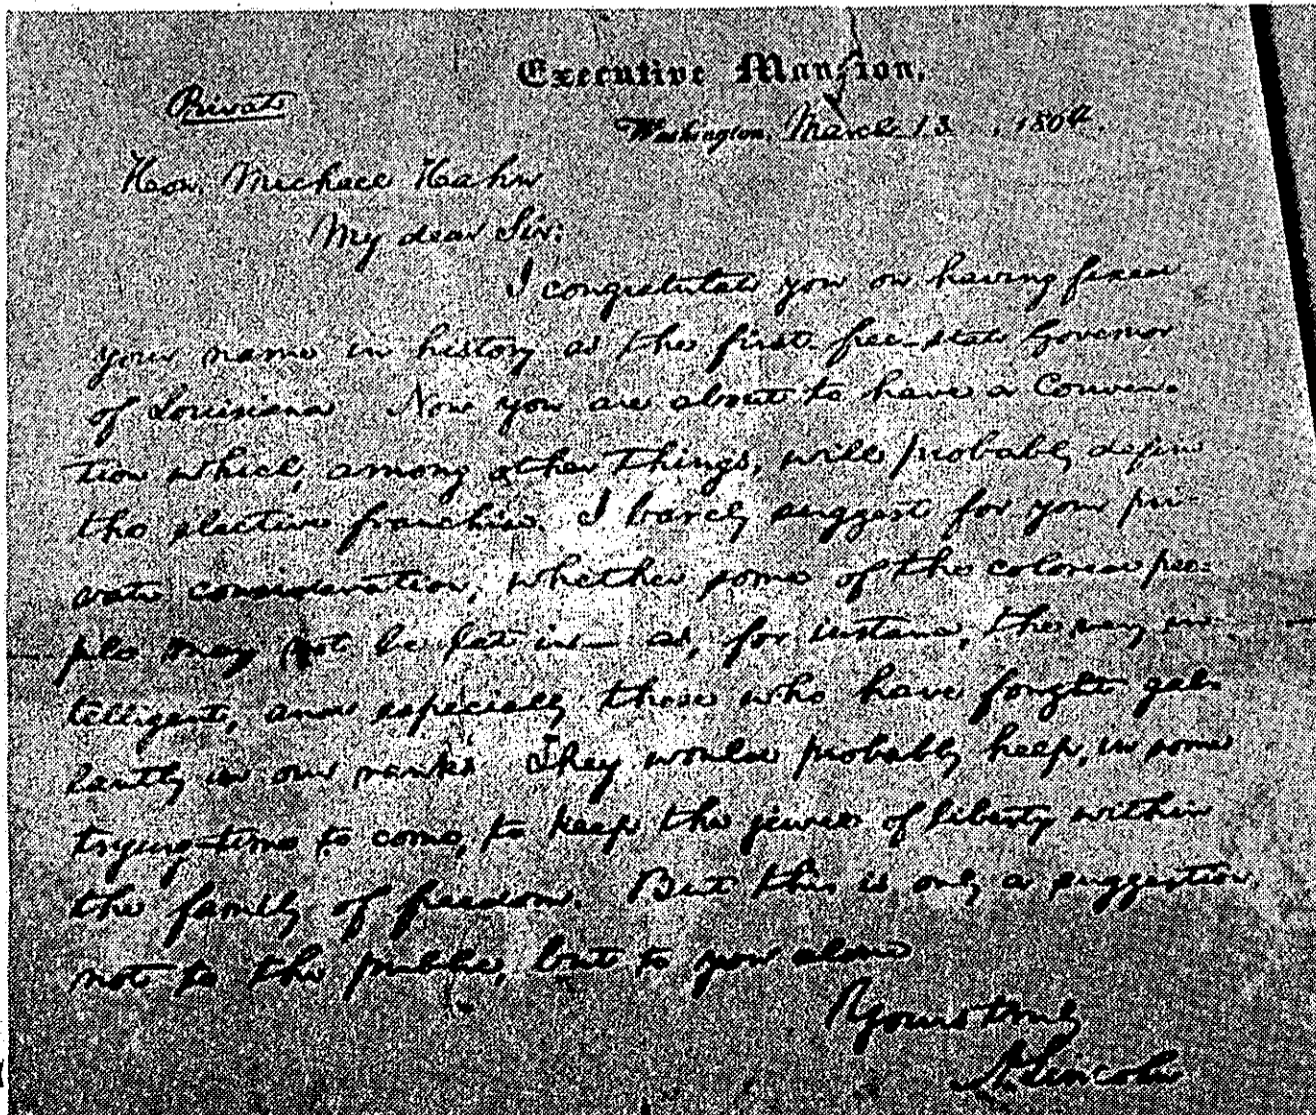 Executive Mansion,
Private
Washington, March 13, 1864.
Hon. Michael Hahn
My dear Sir:
I congratulate you on having fixed
your name in history as the first-free-state Governor
of Louisiana Now you are about to have a Conven-
tion which, among other things, will probably define
the elective franchise. I barely suggest for your pri-
vate consideration, whether some of the colored peo-
ple may not be let in— as, for instance, the very in-
telligent, and especially those who have fought gal-
lantly in our ranks. They would probably help, in some
trying time to come, to keep the jewel of liberty within
the family of freedom. But this is only a suggestion,
not to the public, but to you alone
Yours truly
A. Lincoln